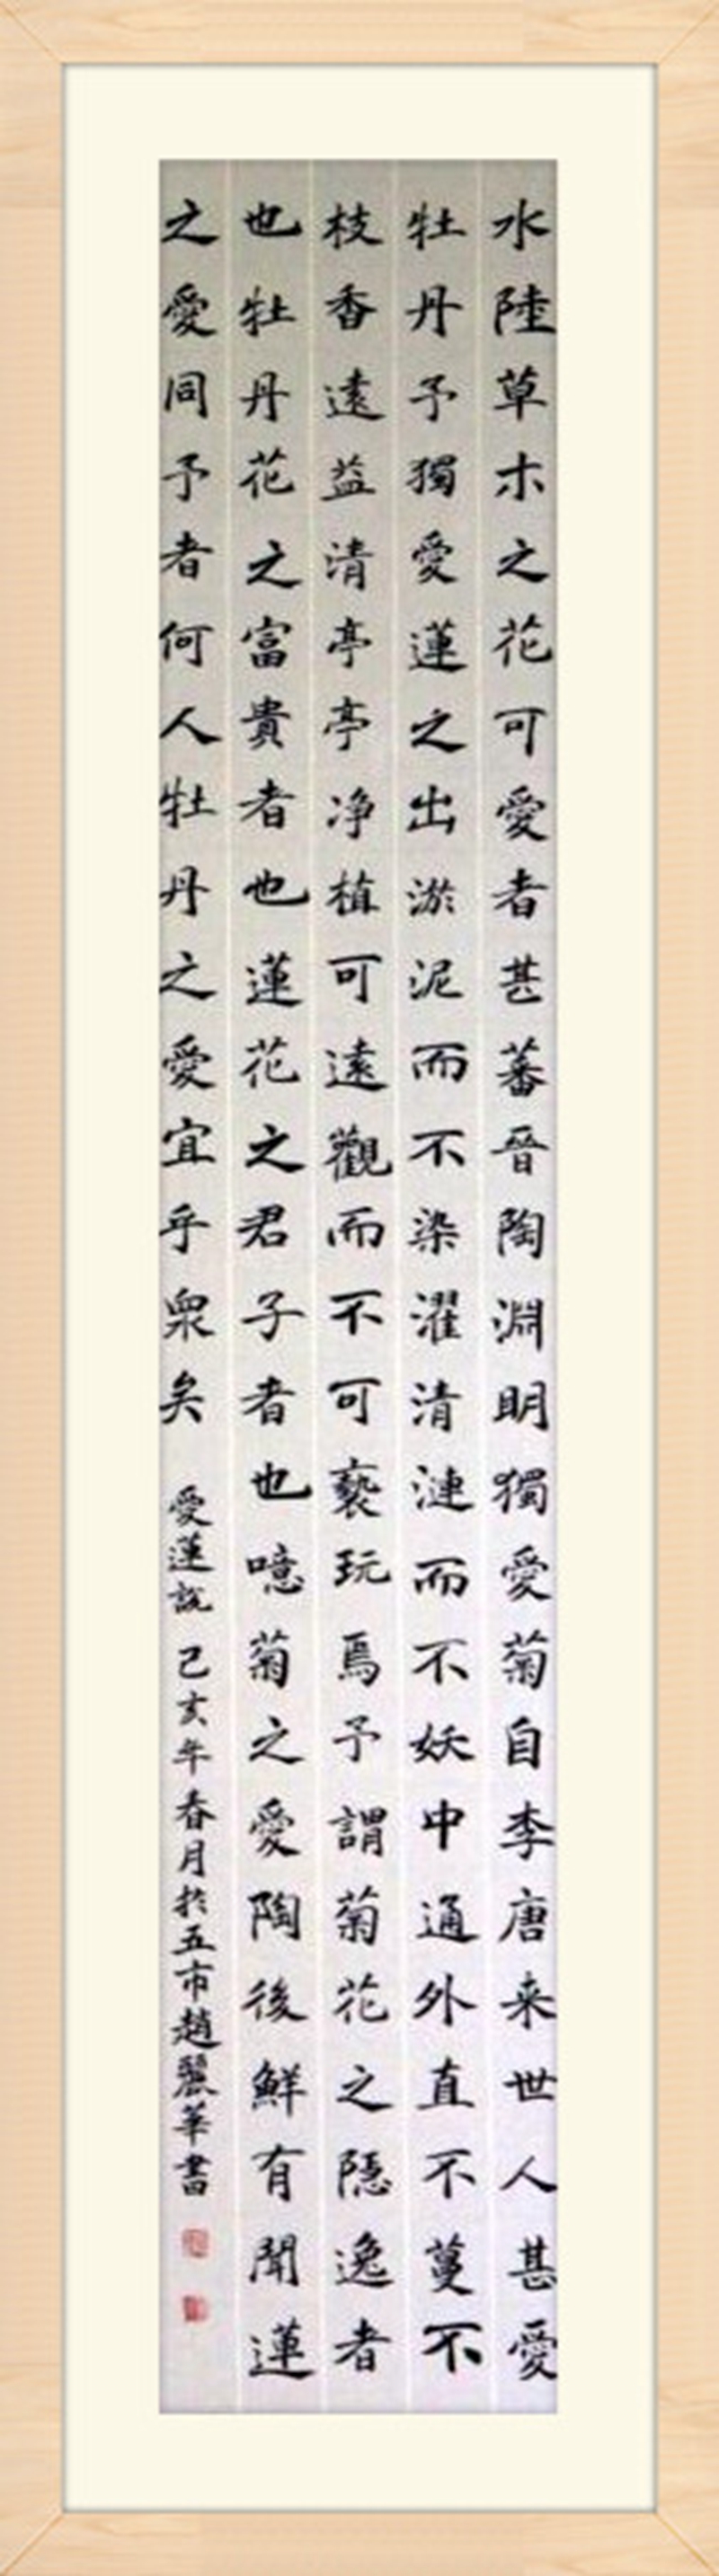 水陸草木之花可愛者甚蕃晉陶淵明獨愛菊自李唐来世人甚愛
牡丹予獨愛蓮之出淤泥而不染濯清漣而不妖中通外直不蔓不
枝香遠益清亭亭净植可遠觀而不可褻玩焉予謂菊花之隱逸者
也牡丹花之富貴者也蓮花之君子者也噫菊之愛陶後鮮有聞蓮
之愛同予者何人牡丹之愛宜乎衆矣 愛蓮説 己亥年春月於五市趙麗華書